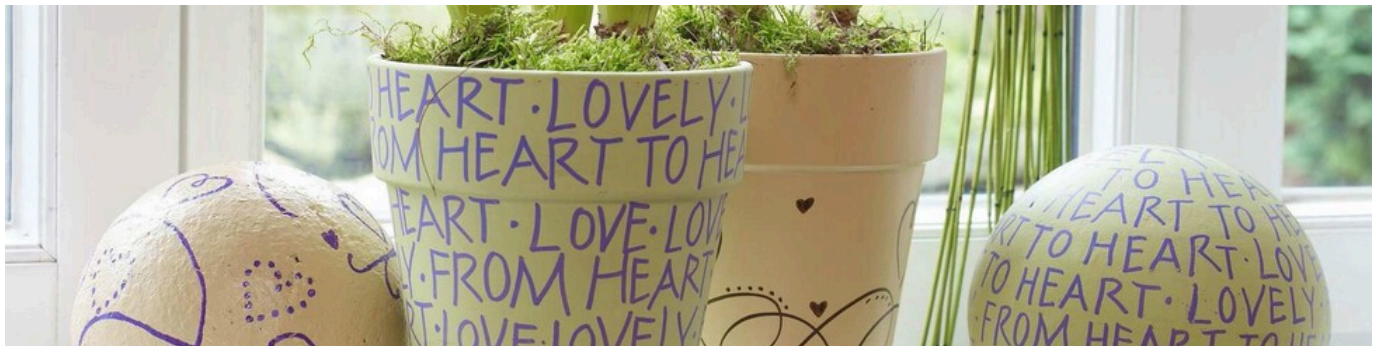 HEART · LOVELY ·
FROM HEART TO HEA
HEART · LOVE · LOV
Y · FROM HEART
RT · LOVE · LOVELY ·
ELY
TO HEA
HEART TO HE
RT TO HEART · LOVE
TO HEART · LOVELY
FROM HEART TO HE